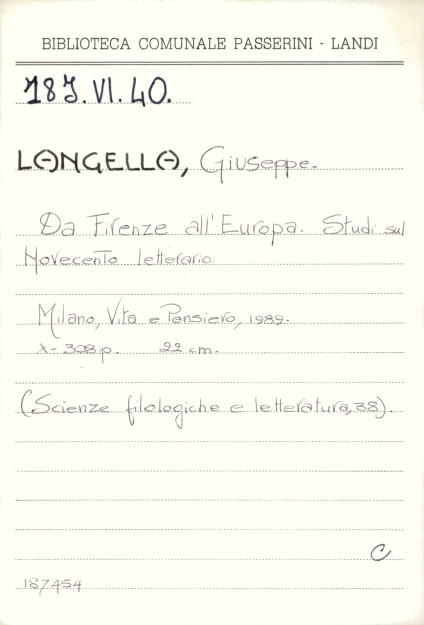 BIBLIOTECA COMUNALE PASSERINI - LANDI
18J.VI.40.
LANGELLA, Giuseppe.
Da Firenze all'Europa. Studi sul
Novecento letterario.
Milano, Vita e Pensiero, 1989.
X-308 p. 22 cm.
(Scienze filologiche e letteratura, 38).
C
187454